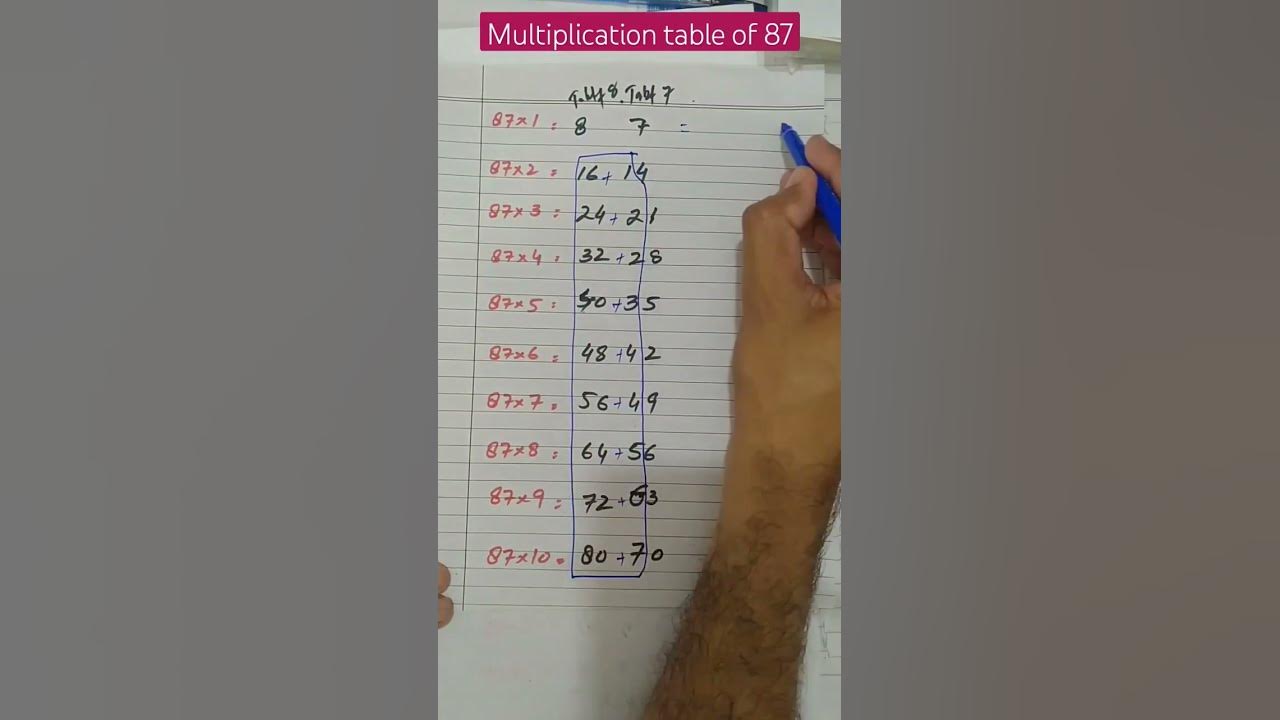 Multiplication table of 87
Table 8. Table 7
87×1 = 8 7 =
87×2 = 16+14
87×3 = 24+21
87×4 = 32+28
87×5 = 40+35
87×6 = 48+42
87×7 = 56+49
87×8 = 64+56
87×9 = 72+63
87×10 = 80+70